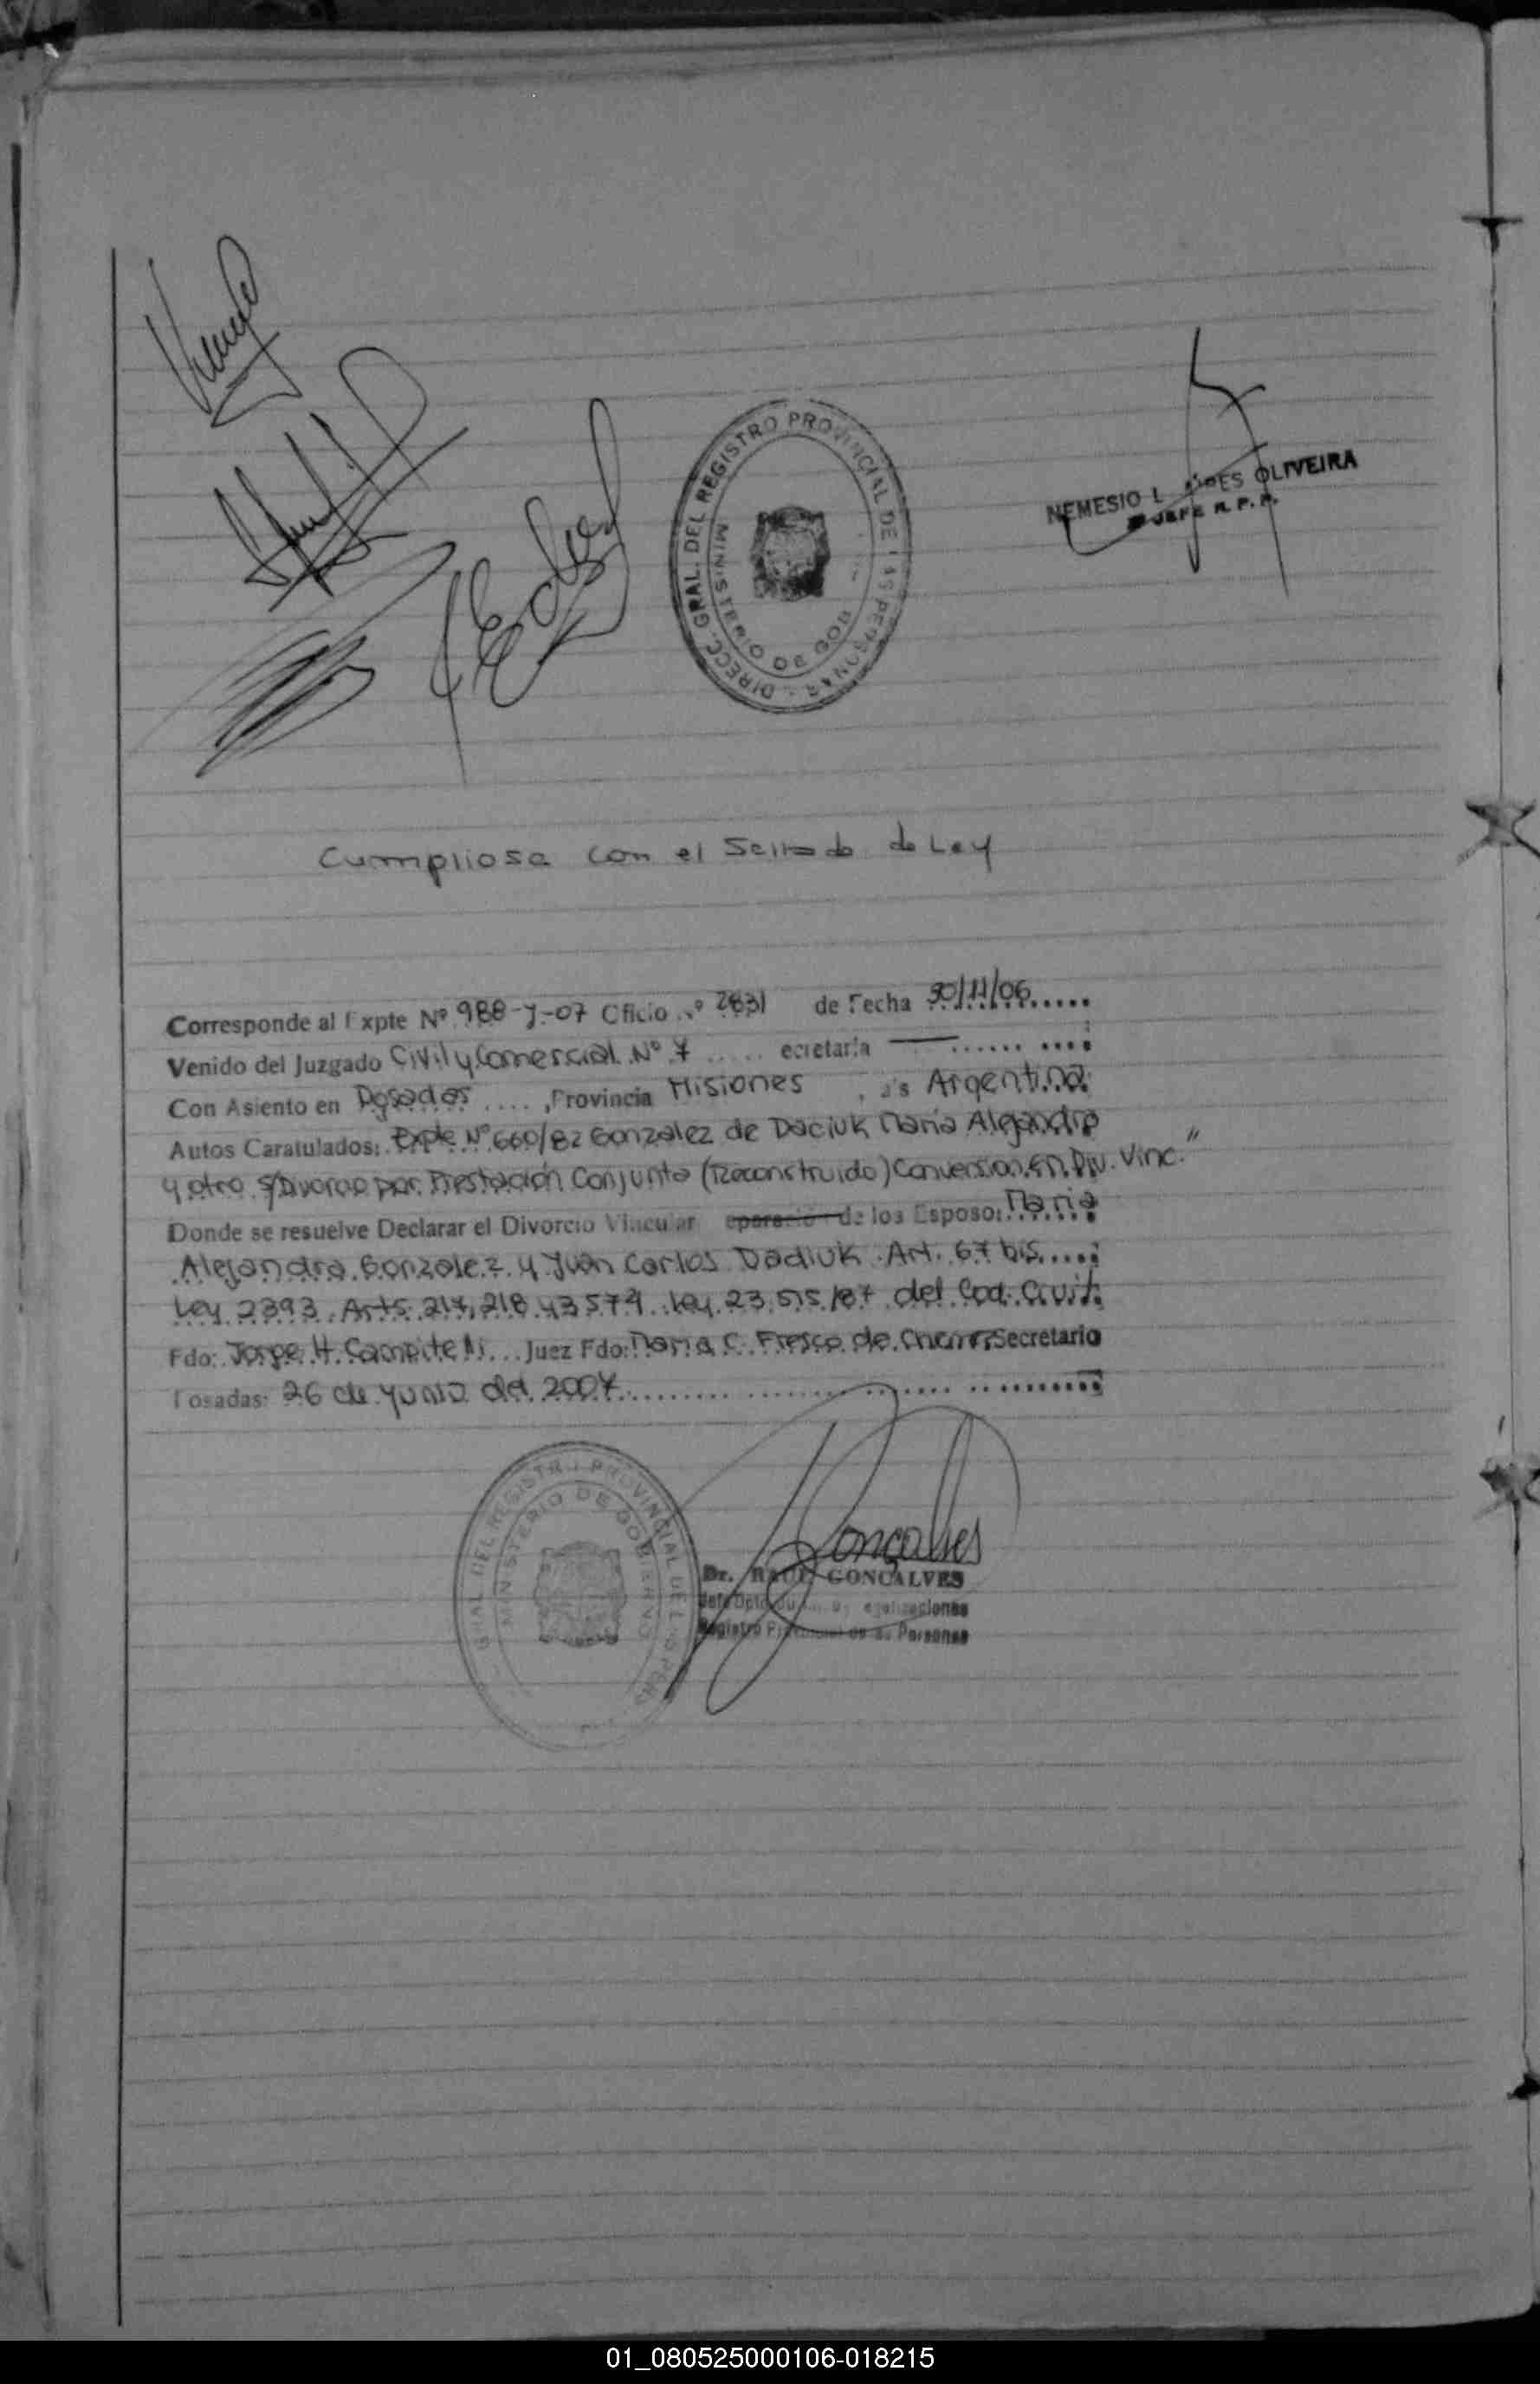 DIRECC. GRAL. DEL REGISTRO PROVINCIAL DE LAS PERSONAS
MINISTERIO DE GOB
NEMESIO L. OLIVEIRA
JEFE R. P. P.
Cumpliose con el Sellado de Ley
Corresponde al Expte Nº 988-y-07 Oficio Nº 2831 de Fecha 30/11/06
Venido del Juzgado Civil y Comercial Nº 7 ..... ecretaria —
Con Asiento en Posadas ....,Provincia Misiones , a's Argentina
Autos Caratulados: Expte Nº 660/82 Gonzalez de Daciuk Maria Alejandra
y otro s/Divorcio por Prestación Conjunta (Reconstruido) Conversion en Div. Vinc."
Donde se resuelve Declarar el Divorcio Vincular eparación de los Esposos: Maria
Alejandra Gonzalez y Juan Carlos Daciuk Art. 67 bis
Ley 2393 Arts 214, 218 y 3574 Ley 23.515/87 del Cod. Civil
Fdo: Jorge H. Campitelli ... Juez Fdo: Maria C. Fresco de Secretario
Posadas: 26 de Junio del 2007
GRAL. DEL REGISTRO PROVINCIAL DE L S PERS
MINISTERIO DE GOBIERNO
Gonçalves
Dr. RAUL GONÇALVES
Jefe Dpto egalizaciones
Registro Provincial de as Personas
01_080525000106-018215